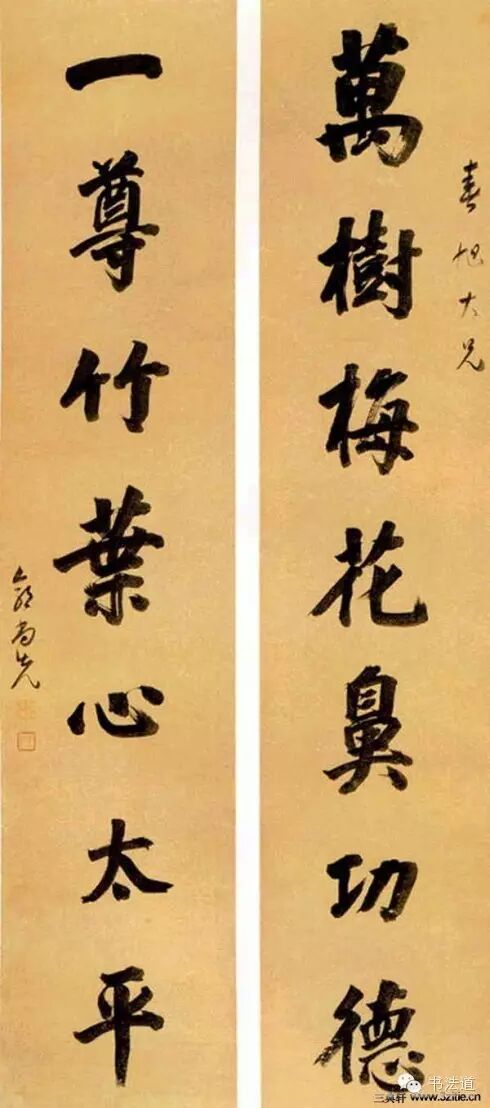 春旭大兄
萬樹梅花鼻功德
一尊竹葉心太平
郭尚先
书法道
三奥轩 www.32itie.cn